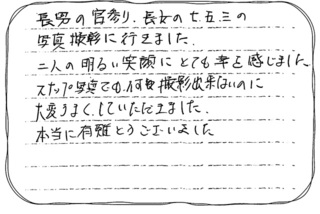 長男の宮参り、長女の七五三の
写真撮影に行きました。
二人の明るい笑顔にとても幸を感じました
スナップ写真でも、何回撮影出来ないのに
大変うまくしていただきました。
本当に有難とうございました